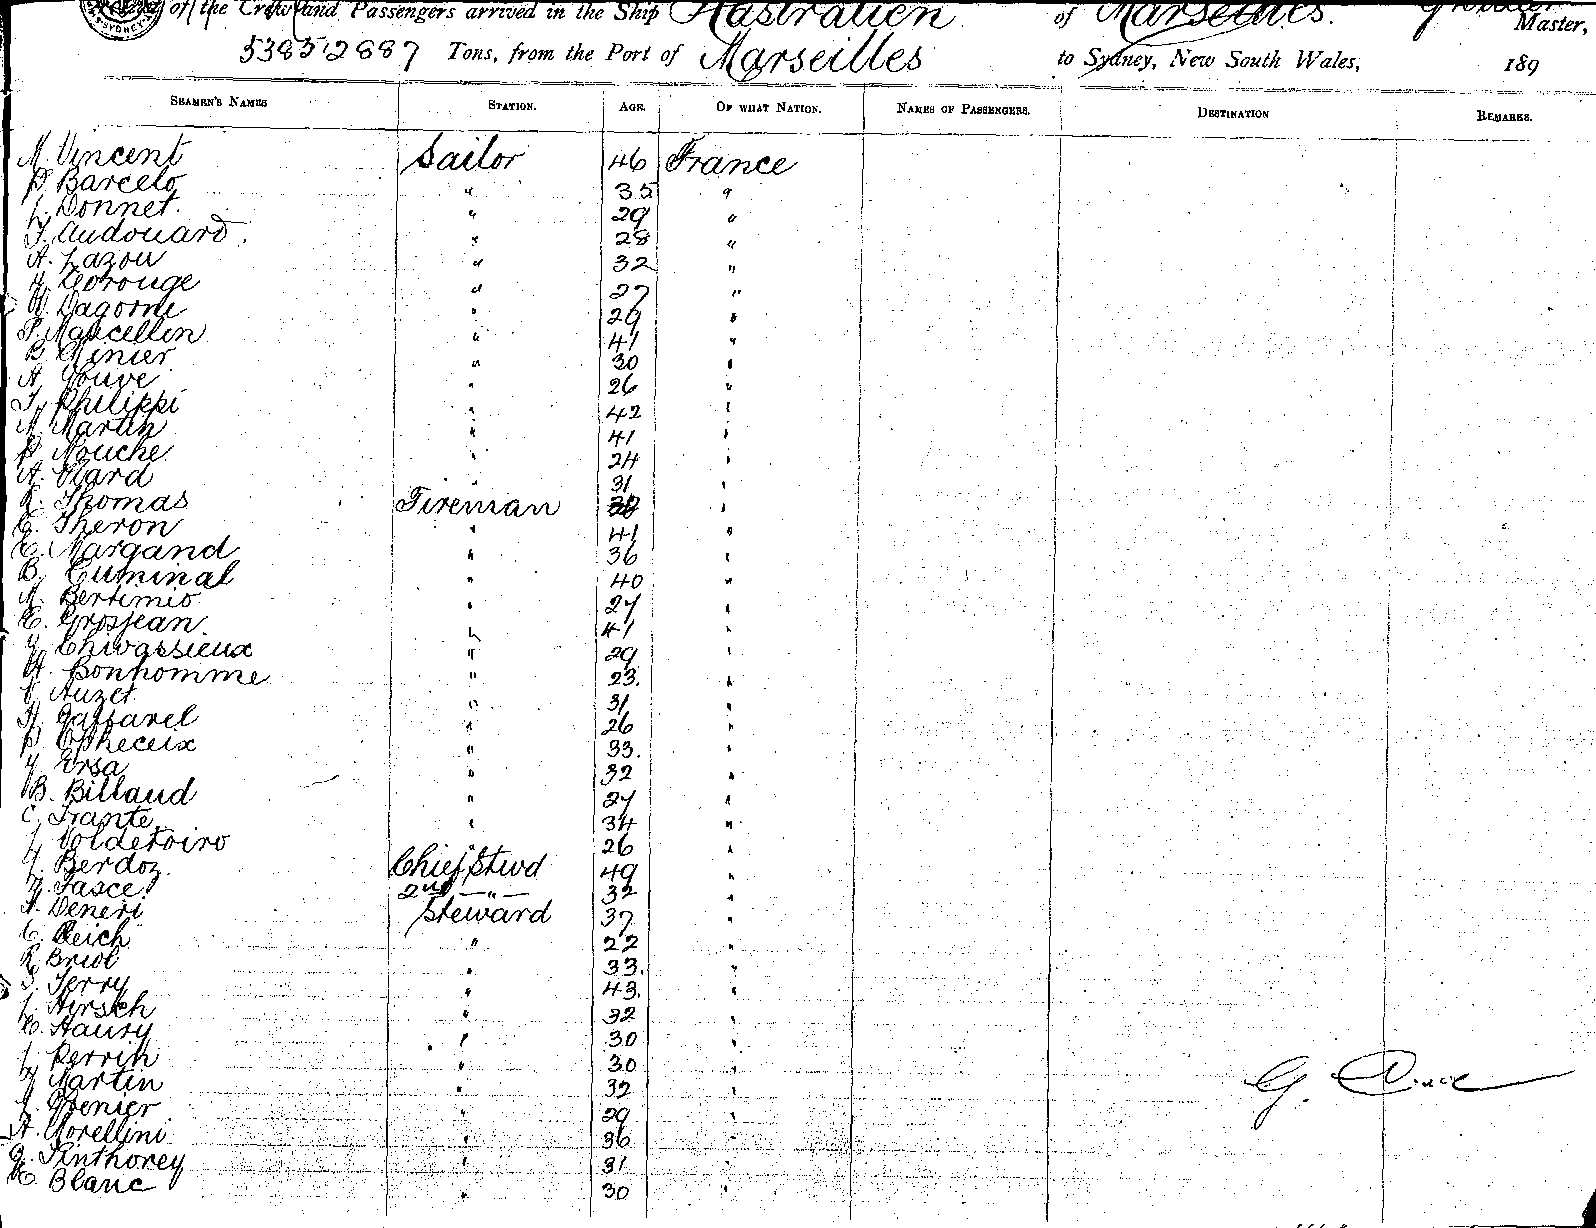 of the Crew and Passengers arrived in the Ship Australien of Marseilles. Master,
5385/2887 Tons, from the Port of Marseilles to Sydney, New South Wales, 189
SEAMEN'S NAMES STATION. AGE. OF WHAT NATION. NAMES OF PASSENGERS. DESTINATION REMARKS.
M. Vincent Sailor 46 France
P. Barcelo " 35 "
L. Donnet. " 29 "
J. Audouard. " 28 "
A. Lazou " 32 "
Gorouge " 27 "
Dagorne " 29 "
P. Marcellin " 41 "
B. Menier " 30 "
A. Jouve " 26 "
J. Philippi " 42 "
M. Martin " 41 "
P. Nouche " 24 "
A. Viard " 31 "
R. Thomas Fireman "
E. Theron " 41 "
E. Margand " 36 "
B. Cuminal " 40 "
M. Bertimio " 27 "
E. Grosjean " 41 "
J. Chivassieux " 29 "
H. Bonhomme " 23. "
Auzet " 31 "
H. Gassarel " 26 "
P. " 33. "
J. Ersa " 32 "
B. Billaud " 27 "
C. Trante " 34 "
L. Voldetoiro " 26 "
J. Berdoz Chief Stwd 49 "
J. Fasce 2nd —"— 32 "
A. Deneri Steward 37 "
C. Reich " 22 "
R. Briol " 33. "
J. Terry " 43. "
L. Hirsch " 32 "
E. Haury " 30 "
L. Perrin " 30 "
J. Martin " 32 "
L. Grenier " 29 "
A. Morellini " 36 "
J. Tinthorey " 31 "
E. Blanc " 30 "
G.